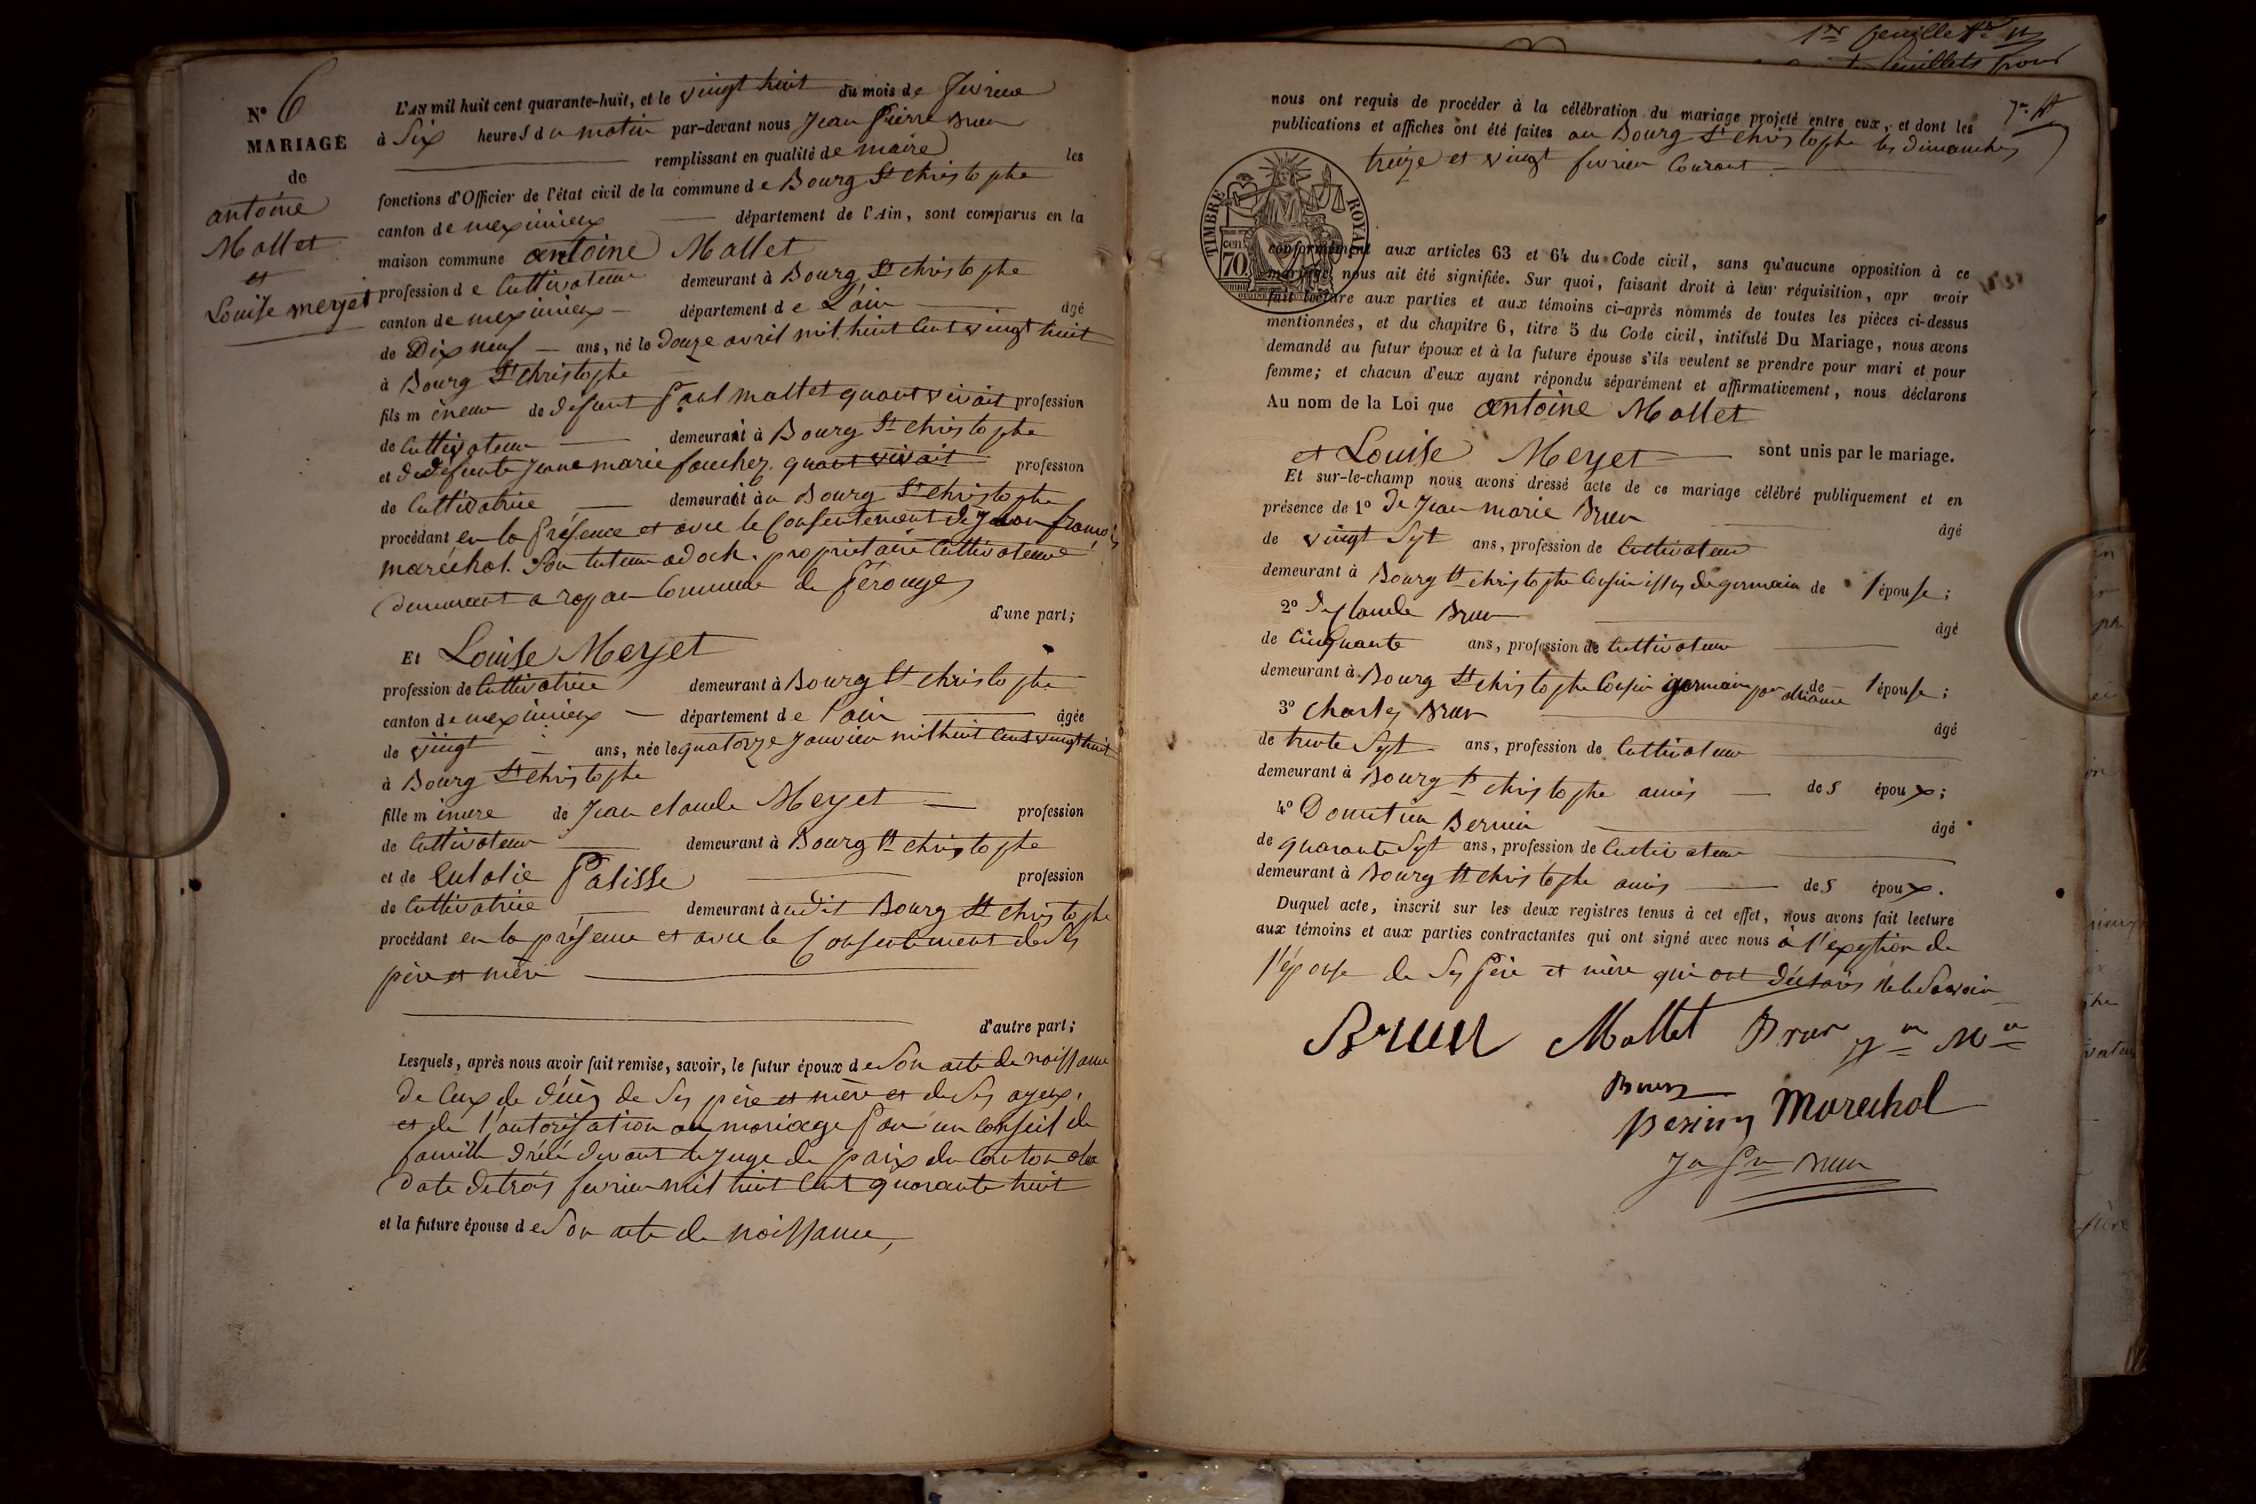 N° 6
MARIAGE
de
antoine
Mallet
et
Louise meyet
L'AN mil huit cent quarante-huit, et le vingt huit du mois de fevrier
à Six heureS du matin par-devant nous Jean Pierre Brun
remplissant en qualité de maire les
fonctions d'Officier de l'état civil de la commune de Bourg St christophe
canton de meximieux département de l'Ain, sont comparus en la
maison commune antoine Mallet
profession de Cultivateur demeurant à Bourg St christophe
canton de meximieux département de L'ain âgé
de Dix neuf ans, né le Douze avril mil huit Cent vingt huit
à Bourg St christophe
fils mineur de defunt Paul mallet quant vivait profession
de Cultivateur demeurait à Bourg St christophe
et de defunte Jeane marie fouchez quant vivait profession
de Cultivatrice demeurait au Bourg St christophe
procédant en la Présence et avec le Consentement de Jean françois
maréchal. Son tuteur adock. propriétaire Cultivateur
demeurant a commune de Perouges
d'une part;
Et Louise Meyet
profession de Cultivatrice demeurant à Bourg St christophe
canton de meximieux département de l'ain âgée
de vingt ans, née le quatorze Janvier mil huit Cent vingt huit
à Bourg St christophe
fille mineure de Jean claude Meyet profession
de Cultivateur demeurant à Bourg St christophe
et de Eulalie Palisse profession
de Cultivatrice demeurant audit Bourg St christophe
procédant en la présence et avec le Consentement de Ses
père et mère
d'autre part;
Lesquels, après nous avoir fait remise, savoir, le futur époux de Son acte de naissance
de Ceux de décès de Ses père et mère et de Ses ayeux,
et de l'autorisation au mariage Par un conseil de
famille devant le juge de paix du Canton
date de trois fevrier mil huit Cent quarante huit
et la future épouse de Son acte de naissance,
1er feuillet
feuillets pour
7me ft
nous ont requis de procéder à la célébration du mariage projeté entre eux, et dont les
publications et affiches ont été faites au Bourg St christophe les dimanches
treize et vingt fevrier Courant
TIMBRE ROYAL
70 cen
conformément aux articles 63 et 64 du Code civil, sans qu'aucune opposition à ce
mariage nous ait été signifiée. Sur quoi, faisant droit à leur réquisition, apr avoir
fait lecture aux parties et aux témoins ci-après nommés de toutes les pièces ci-dessus
mentionnées, et du chapitre 6, titre 5 du Code civil, intitulé Du Mariage, nous avons
demandé au futur époux et à la future épouse s'ils veulent se prendre pour mari et pour
femme; et chacun d'eux ayant répondu séparément et affirmativement, nous déclarons
Au nom de la Loi que antoine Mallet
et Louise Meyet sont unis par le mariage.
Et sur-le-champ nous avons dressé acte de ce mariage célébré publiquement et en
présence de 1° De Jean marie Brun âgé
de vingt Sept ans, profession de Cultivateur
demeurant à Bourg St christophe Cousin issus de germain de l'épouse;
2° de Claude Brun âgé
de Cinquante ans, profession de Cultivateur
demeurant à Bourg St christophe Cousin germain par alliance de l'épouse;
3° Charles Brun âgé
de trente Sept ans, profession de Cultivateur
demeurant à Bourg St christophe amis deS époux;
4° Domitien Bernin âgé
de quarante Sept ans, profession de Cultivateur
demeurant à Bourg St christophe amis deS époux.
Duquel acte, inscrit sur les deux registres tenus à cet effet, nous avons fait lecture
aux témoins et aux parties contractantes qui ont signé avec nous à l'exeption de
l'épouse de Ses Père et mère qui ont déclarés ne le Savoir
Brun Mallet Brun Jn Mie
Brun
Marechal
Jn Pre Brun